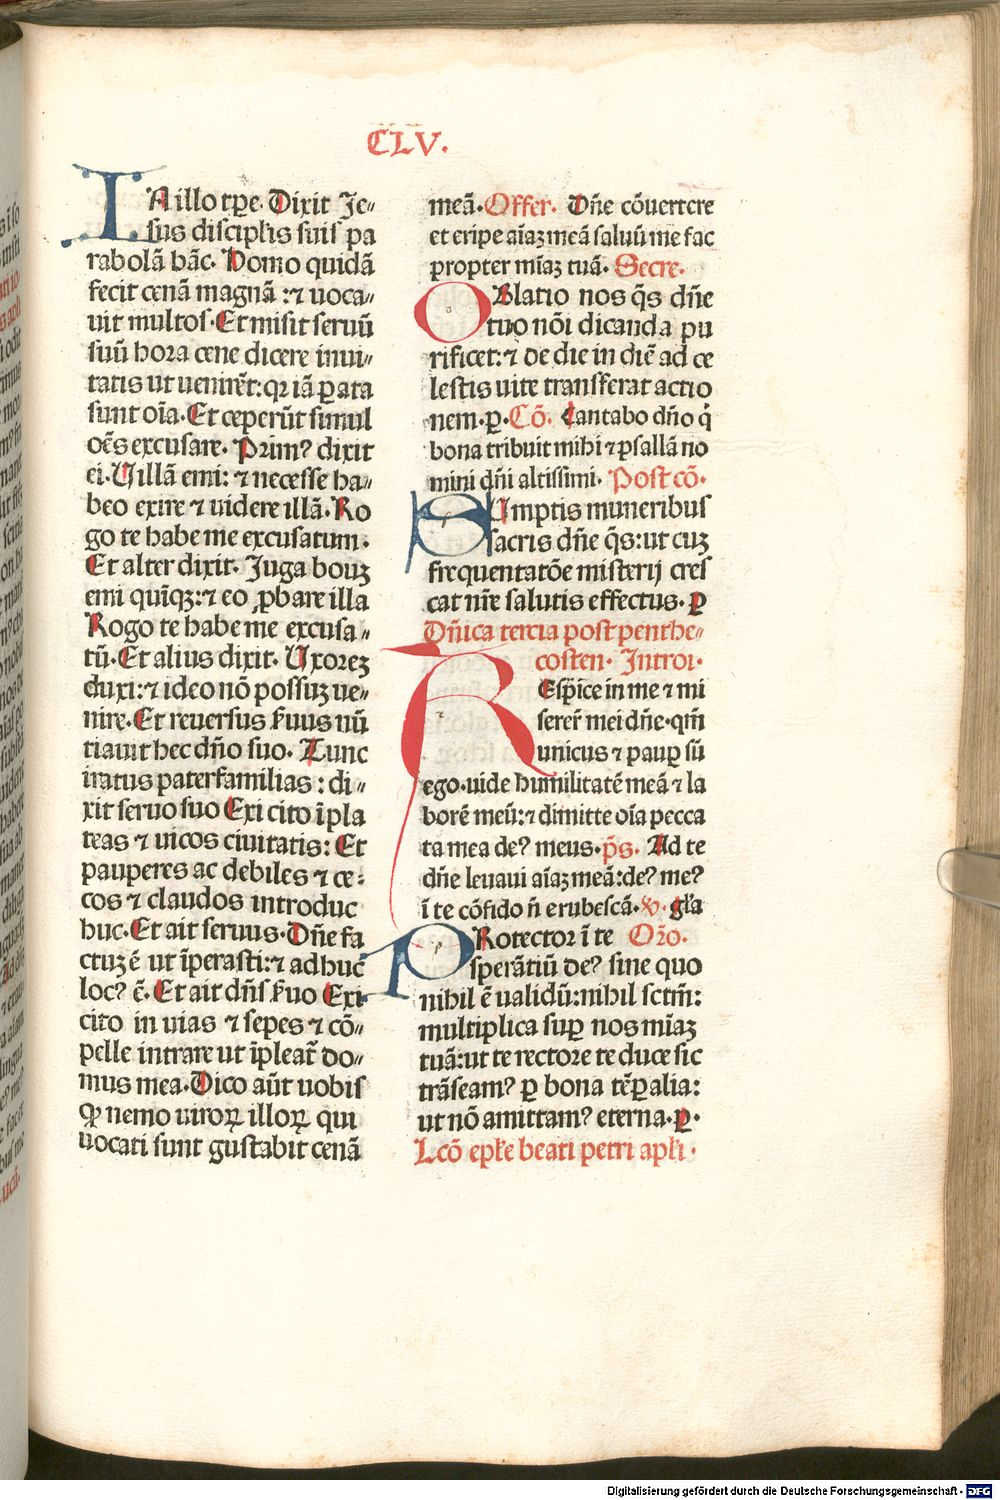 CLV.
IN illo tꝑe. Dixit Je-
sus discipĺis suis pa
rabolā hāc. Homo quidā
fecit cenā magnā :⁊ uoca-
uit multos. Et misit seruū
suū hora cene dicere inui-
tatis ut uenirēt: qꝛ iā ꝑata
sunt oīa. Et ceperūt simul
oēs excusare. Primꝰ dixit
ei. Uillā emi: ⁊ necesse ha-
beo exire ⁊ uidere illā. Ro
go te habe me excusatum.
Et alter dixit. Juga bouꝫ
emi quīqꝫ:⁊ eo ꝓbare illa
Rogo te habe me excusa-
tū. Et alius dixit. Uxoreꝫ
duxi:⁊ ideo nō possuꝫ ue-
nire. Et reuersus ẜuus nū
tiauit hec dño suo. Tunc
iratus paterfamilias : di-
xit seruo suo Exi cito ī pla
teas ⁊ uicos ciuitatis: Et
pauperes ac debiles ⁊ ce-
cos ⁊ claudos introduc
huc. Et ait seruus. Dñe fa
ctuꝫ ē ut īperasti:⁊ adhuc
locꝰ ē. Et ait dñs ẜuo Exi
cito in uias ⁊ sepes ⁊ cō-
pelle intrare ut īpleat̄ do-
mus mea. Dico aūt uobis
ꝙ nemo uiroꝝ illoꝝ qui
uocati sunt gustabit cenā
meā. Offer. Dñe cōuertere
et eripe aīaꝫ meā saluū me fac
propter mīaꝫ tuā. Secre.
OBlatio nos q̄s dñe
tuo nōi dicanda pu
rificet:⁊ de die in diē ad ce
lestis uite transferat actio
nem. ꝑ. Cō. Cantabo dño q̇
bona tribuit mihi ⁊ ꝑsallā no
mini dñi altissimi. Post cō.
SUmptis muneribus
sacris dñe q̄s:ut cuꝫ
frequentatōe misterij cres
cat nr̄e salutis effectus. ꝑ
Dñica tercia post penthe-
costen. Introi.
REspīce in me ⁊ mi
serer̄ mei dñe. qm̄
unicus ⁊ paupꝑ sū
ego. uide humilitatē meā ⁊ la
borē meū:⁊ dimitte oīa pecca
ta mea deꝰ meus. p̄s. Ad te
dñe leuaui aīaꝫ meā:deꝰ meꝰ
ī te cōfido ñ erubescā. ꝟ. gl̄a
PRotector ī te Orō.
sperātiū deꝰ sine quo
nihil ē ualidū:nihil sctm̄:
multiplica suꝑ nos mīaꝫ
tuā:ut te rectore te duce sic
trāseamꝰ ꝑ bona tēꝑalia:
ut nō amittamꝰ eterna. ꝑ.
Lcō epl̄e beati petri apl̄i.
Digitalisierung gefördert durch die Deutsche Forschungsgemeinschaft - DFG